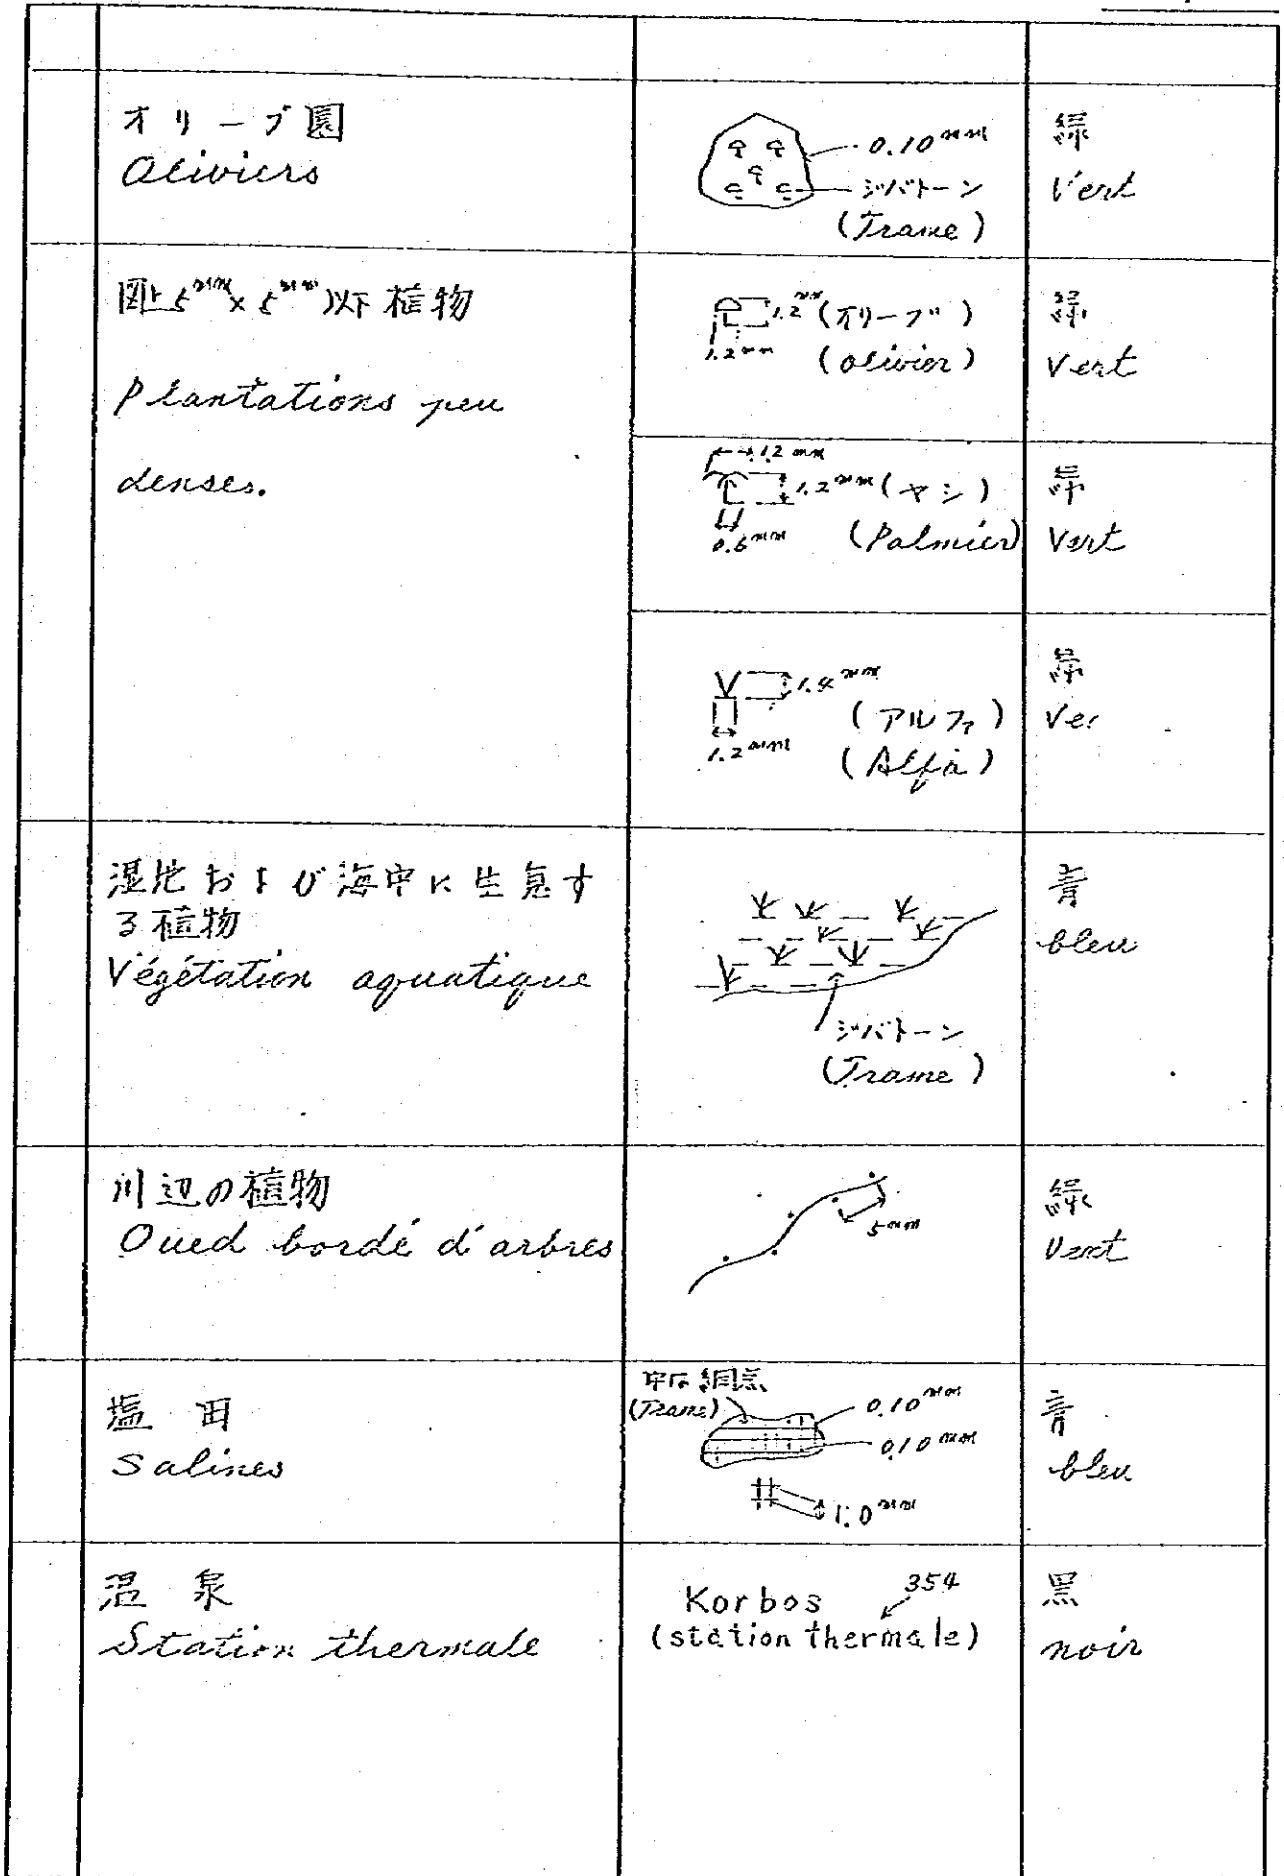 オリーブ園
Oliviers
0.10mm
ジパトーン
(Trame)
緑
Vert
図上5mm×5mm以下植物
Plantations peu
denses.
1.2mm(オリーブ)
1.2mm
(olivier)
緑
Vert
1.2mm
1.2mm(ヤシ)
0.6mm
(Palmier)
緑
Vert
1.4mm
(アルファ)
1.2mm
(Alfa)
緑
Ver
湿地および海中に生息す
る植物
Végétation aquatique
ジパトーン
(Trame)
青
bleu
川辺の植物
Oued bordé d'arbres
5mm
緑
Vert
塩田
Salines
中は網点
(Trame)
0.10mm
0.10mm
1.0mm
青
bleu
温泉
Station thermale
Korbos
354
(station thermale)
黒
noir